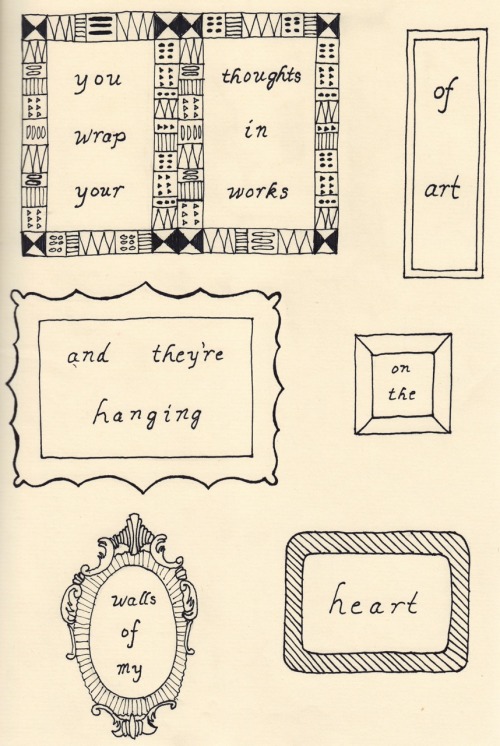 you
wrap
your
thoughts
in
works
of
art
and they're
hanging
on
the
walls
of
my
heart